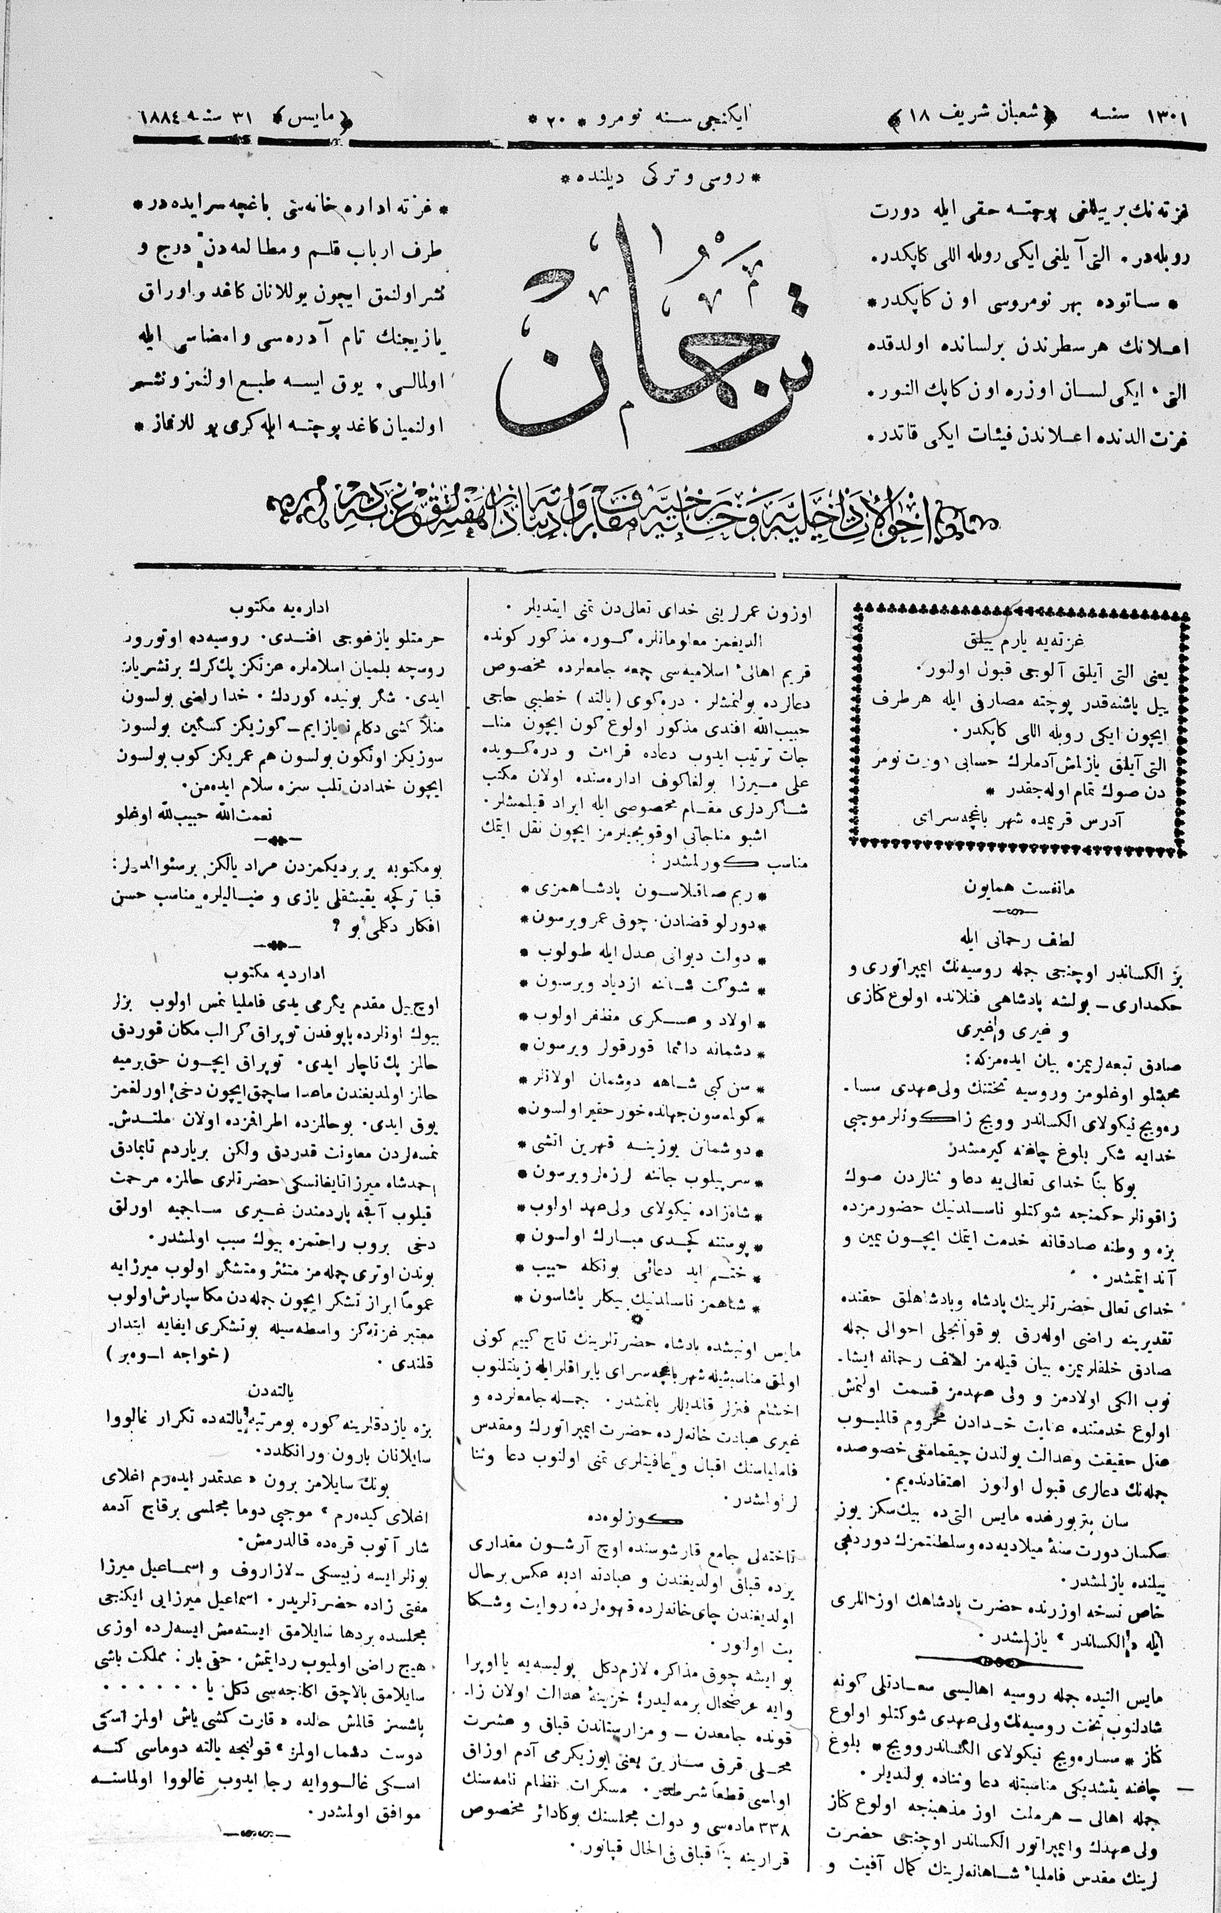 ١٣٠١ سنه ﴿شعبان شریف ١٨﴾ ایکنجی سنه نومرو * ٢٠ * ﴿مایس﴾ ٣١ سنه ١٨٨٤
* روسی و ترکی دیلنده *
غزته‌نك بر ییللغی پوچته حقی ایله دورت
روبله‌در. التی آیلغی ایکی روبله اللی کاپکدر.
* ساتوده بهر نومروسی اون کاپکدر *
اعلانك هر سطرندن برلسانده اولدقده
التی، ایکی لسان اوزره اون کاپك النور.
غزت الدنده اعلاندن فیئات ایکی قاتدر.
ترجمان
* غزته اداره خانه‌سی باغچه سرایده‌در *
طرف ارباب قلم و مطالعه‌دن درج و
نشر اولنمق ایچون یوللانان کاغد و اوراق
یازیجنك تام آدره‌سی و امضاسی ایله
اولمالی. یوق ایسه طبع اولنمز و نشر
اولنمیان کاغد پوچته ایله کری یوللانماز *
غزته‌یه یارم ییلق
یعنی التی آیلق آلوجی قبول اولنور.
ییل باشنه‌قدر پوچته مصارفی ایله هر طرف
ایچون ایکی روبله اللی کاپکدر.
التی آیلق یازلمش آدملرك حسابی
دن صوك تمام اوله‌جقدر *
آدرس قریمده شهر باغچه‌سرای
مانفست همایون
لطف رحمانی ایله
بز الکساندر اوچنجی جمله روسیه‌نك ایمپراتوری و
حکمداری – بولشه پادشاهی فنلانده اولوغ کنازی
و غیری و غیری
صادق تبعه‌لریمزه بیان ایده‌مزکه:
محبتلو اوغلومز و روسیه تختنك ولی عهدی سسا.
ره‌ویچ نیکولای الکساندر وویچ زاکونلر موجبی
خدایه شکر بلوغ چاغنه کیرمشدر
بوکا بنا خدای تعالی‌یه دعا و ثنالردن صوك
زاقونلر حکمنجه شوکتلو ناسلدنیك حضورمزده
بزه و وطنه صادقانه خدمت ایتمك ایچون یمین و
آند ایتمشدر.
خدای تعالی حضرتلرینك پادشاه و پادشاهلق حقنده
تقدیرینه راضی اوله‌رق بو قوانجلی احوالی جمله
صادق خلقلریمزه بیان قیله‌مز لطف رحمانه ایشا.
نوب الکی اولادمز و ولی عهدمز قسمت اولنمش
اولوغ خدمتنده عنایت خدادن محروم قالمیوب
عقل حقیقت و عدالت یولندن چیقمامغی خصوصده
جمله‌نك دعالری قبول اولنور اعتقادنده‌یم.
سان پتربورغده مایس التی‌ده بیك سکز یوز
سکسان دورت سنهٔ میلادیه‌ده و سلطنتمزك دوردنجی
ییلنده یازلمشدر.
خاص نسخه اوزرنده حضرت پادشاهك اوز اللری
ایله «الکساندر» یازلمشدر.
مایس التیده جمله روسیه اهالیسی سعادتلی کونه
شادلنوب تخت روسیه‌نك ولی عهدی شوکتلو اولوغ
کناز * سساره‌ویچ نیکولای الکساندروویچ * بلوغ
چاغنه یتشدیکی مناسبتله دعا و ثناده بولندیلر.
جمله اهالی – هر ملت اوز مذهبنجه اولوغ کناز
ولی عهدك و ایمپراتور الکساندر اوچنجی حضرت
لرینك مقدس فامیلیا شاهانه‌لرینك کمال آفیت و
اوزون عمرلرینی خدای تعالی‌دن تمنی ایتدیلر.
الدیغمز معلوماتلره کوره مذکور کونده
قریم اهالیٔ اسلامیه‌سی جمعه جامعلرده مخصوص
دعالرده بولنمشلر. دره‌کوی (یالته) خطیبی حاجی
حبیب‌الله افندی مذکور اولوغ کون ایچون منا–
جات ترتیب ایدوب دعاده قرائت و دره‌کویده
علی میرزا بولغاکوف اداره‌سنده اولان مکتب
شاکردلری مقام مخصوصی ایله ایراد قیلمشلر.
اشبو مناجاتی اوقویجیلرمز ایچون نقل ایتمك
مناسب کورلمشدر:
* ربم صاقلاسون پادشاهمزی *
* دورلو قضادن چوق عمر ویرسون *
* دولت دیوانی عدل ایله طولوب *
* شوکت شاننه ازدیاد ویرسون *
* اولاد و عسکری مظفر اولوب *
* دشمانه دائما قورقولر ویرسون *
* سن کبی شاهه دوشمان اولانلر *
* کولمه‌سون جهانده خور حقیر اولسون *
* دوشمانن یوزینه قهرین انشی *
* سرپیلوب جاننه لرزه‌لر ویرسون *
* شاه‌زاده نیکولای ولی عهد اولوب *
* پوستنه کچدی مبارك اولسون *
* ختم اید دعائی بونکله حبیب *
* شاهمز ناسلدنیك بیکلر یاشاسون *
مایس اونبشده پادشاه حضرتلرینك تاج کییم کونی
اولمق مناسبتیله شهر باغچه سرای بایراقلر ایله زینتلنوب
اخشام فنرلر قاندیللر یانمشدر. جمله جامعلرده و
غیری عبادت خانه‌لرده حضرت ایمپراتورك و مقدس
فامیلیاسنك اقبال و عافیتلری تمنی اولنوب دعا و ثنا
لر اولمشدر.
کوزلوه‌ده
تاخته‌لی جامع قارشوسنده اوچ آرشون مقداری
یرده قباق اولدیغندن و عبادته ادبه عکس برحال
اولدیغندن چای‌خانه‌لرده قهوه‌لرده روایت و شکا
یت اولنور.
بو ایشه چوق مذاکره لازم دکل پولیسه‌یه یا اوپرا
وایه عرضحال برمه‌لیدر؛ خزینهٔ عدالت اولان زا.
قونده جامعدن – و مزارستاندن قباق و عشرت
محلی قرق سازین یعنی یوزیکرمی آدم اوزاق
اولماسی قطعا شرطدر. مسکرات نظام نامه‌سنك
٣٣٨ ماده‌سی و دولت مجلسنك بوکادائر مخصوص
قرارینه بنا قباق فی‌الحال قپانور.
اداره‌یه مکتوب
حرمتلو یازغوجی افندی. روسیه‌ده اوتورور
روسچه بلمیان اسلاملره غزتکز پك کرك برنشریات
ایدی. شکر بونیده کوردك. خدا راضی بولسون
منلا کشی دکلم یازایم – کوزیکز کسکین بولسون
سوزیکز اوتکون بولسون هم عمریکز کوب بولسون
ایچون خدادن تلب سزه سلام ایده‌من.
نعمت‌الله حبیب‌الله اوغلو
بو مکتوبه یر بردیکمزدن مراد یالکز برسئوالدیلر:
قبا ترکچه یقیشقلی یازی و ضیالیلره مناسب حسن
افکار دکلمی بو ؟
اداریه مکتوب
اوچ ییل مقدم یگرمی یدی فامیلیا نمس اولوب بزلر
بیوك اونلرده پاپوفدن توپراق کرالب مکان قوردق
حالمز پك ناچار ایدی. توپراق ایچون حق برمیه
حالمز اولمدیغندن ماعدا ساچمق ایچون دخی اورلغمز
یوق ایدی. بو حالمزده اطرافمزده اولان ملتدش.
نمسه‌لردن معاونت قدردق ولکن بریاردم تاپمادق
احمدشاه میرزا تایغانسکی حضرتلری حالمزه مرحمت
قیلوب آقچه یاردمندن غیری ساچمیه اورلق
دخی بروب راحتمزه بیوك سبب اولمشدر.
بوندن اوتری جمله‌مز متشکر اولوب میرزایه
عموما ابراز تشکر ایچون جمله‌دن مکا سپارش اولوب
معتبر غزته‌کز واسطه‌سیله بو تشکری ایفایه ابتدار
قلندی. (خواجه اوه‌بر)
یالته‌دن
بزه یازدقلرینه کوره بو مرتبه یالته‌ده تکرار غالووا
سایلانان بارون ورانکلدر.
بونك سایلامز برون «عدتمدر ایده‌رم اغلای
اغلای کیده‌رم» موجبی دوما مجلسی برقاچ آدمه
شار آتوب قره‌ده قالدرمش.
بونلر ایسه زبیسکی – لازاروف و اسماعیل میرزا
مفتی زاده حضرتلریدر. اسماعیل میرزایی ایکنجی
مجلسده بردها سایلامق ایسته‌مش ایسه‌لرده اوزی
هیچ راضی اولمیوب رد ایتمش. حقی بار: مملکت باشی
سایلامق بالاچق اکلنجه‌سی دکل یا . . . . . .
باشسز قالمش حالده «قارت کشی یاش اولمز اسکی
دوست دشمان اولمز» قولنجه یالته دوماسی کنه
اسکی غالووایه رجا ایدوب غالووا اولماسنه
موافق اولمشدر.